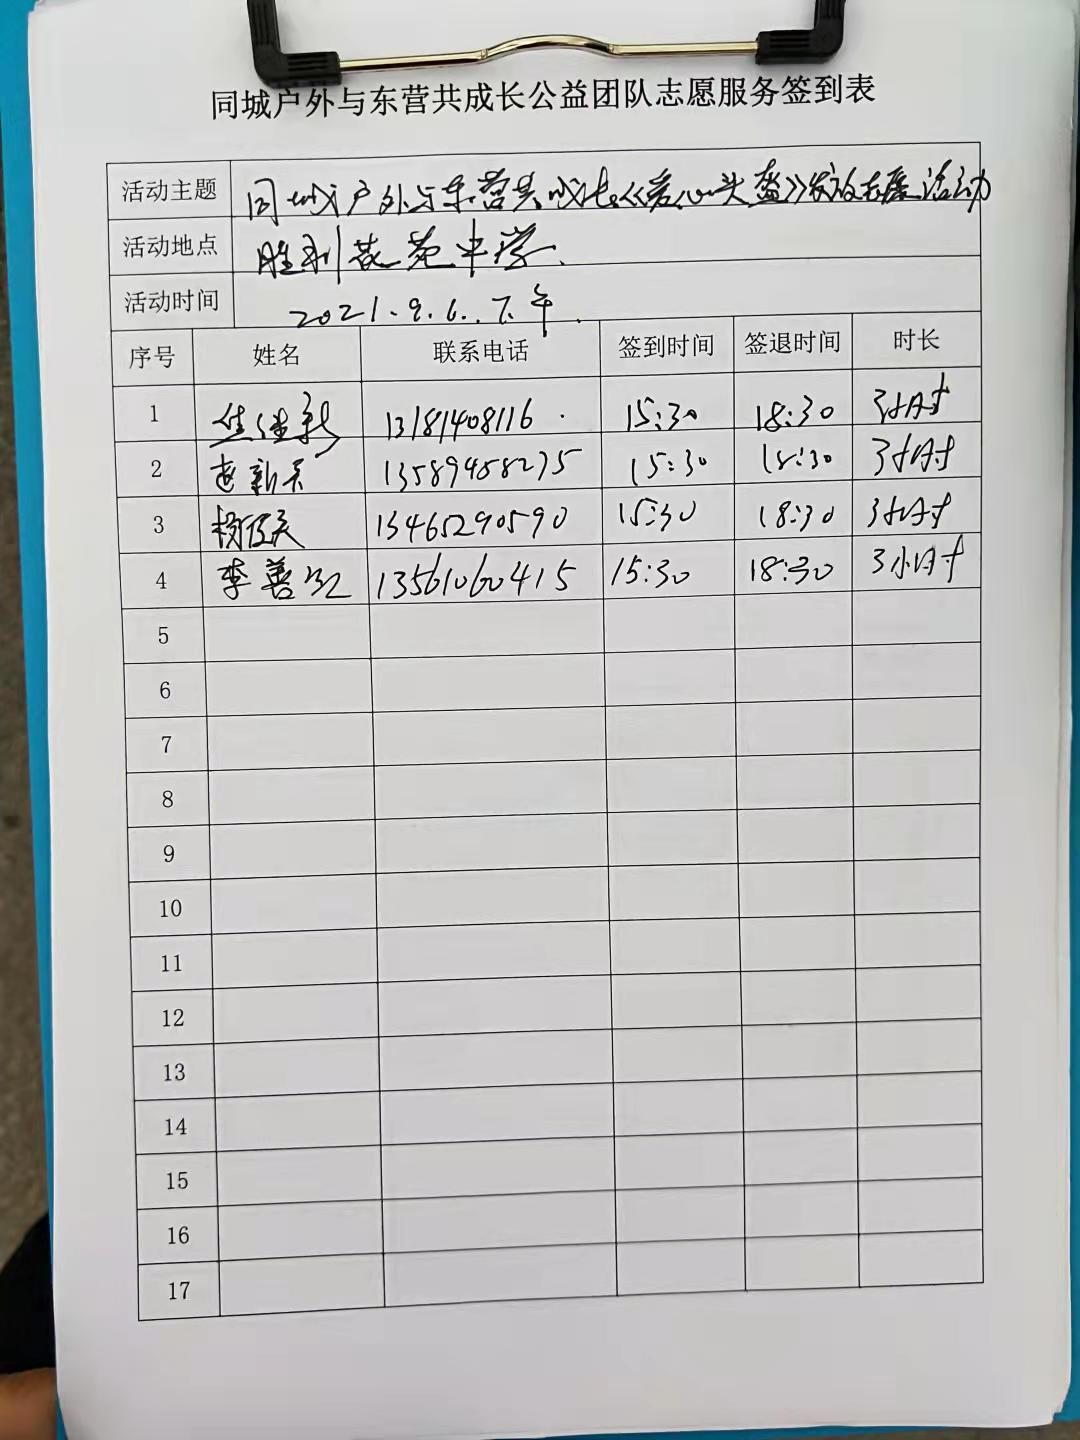 同城户外与东营共成长公益团队志愿服务签到表
活动主题 同城户外与东营共成长《爱心头盔》发放志愿活动
活动地点 胜利花苑中学.
活动时间 2021.9.6.下午.
序号 姓名 联系电话 签到时间 签退时间 时长
1 13181408116 15:30 18:30 3小时
2 赵新 13589458275 15:30 18:30 3小时
3 杨 13465290590 15:30 18:30 3小时
4 李善 13561060415 15:30 18:30 3小时
5
6
7
8
9
10
11
12
13
14
15
16
17